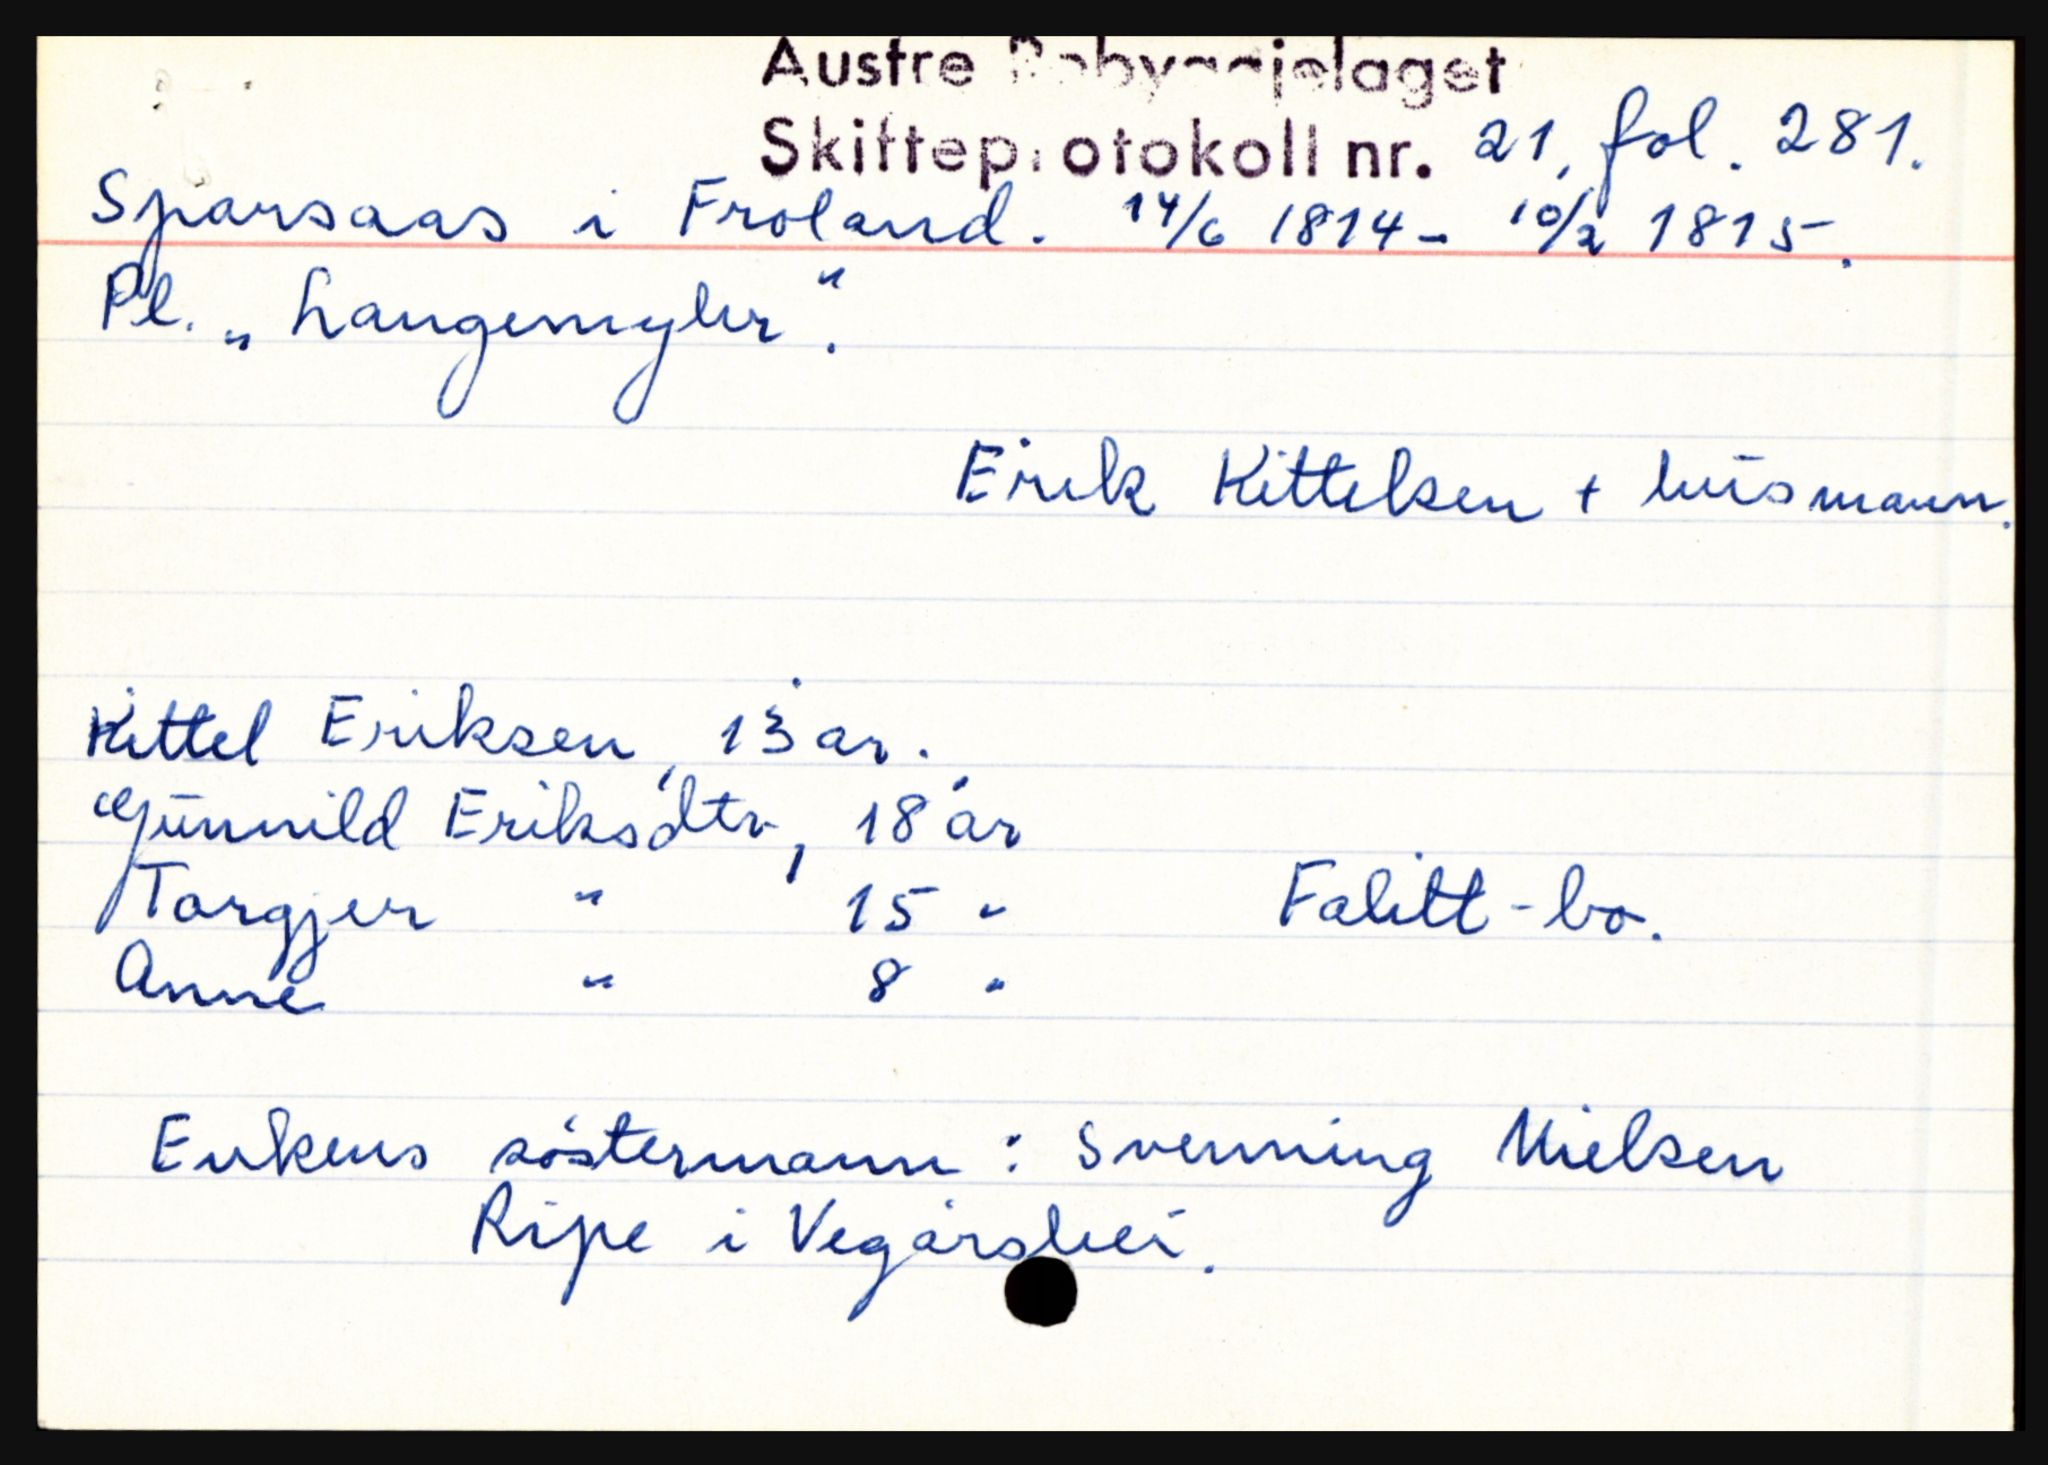 Austre Robyggjelaget
Skifteprotokoll nr. 21, fol. 281.
Sparsaas i Froland. 14/6 1814 - 10/2 1815.
Pl. „Langemyhr".
Erik Kittelsen + husmann.
Kittel Eriksen, 13 år.
Gunnild Eriksdtr, 18 år
Torgjer " 15 "
Falitt-bo.
Anne " 8 "
Eirikens söstermann : Svenning Nielsen
Ripe i Vegårshei.